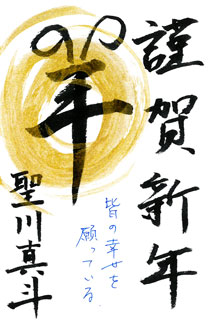 謹賀新年
羊
皆の幸せを
願っている。
聖川真斗